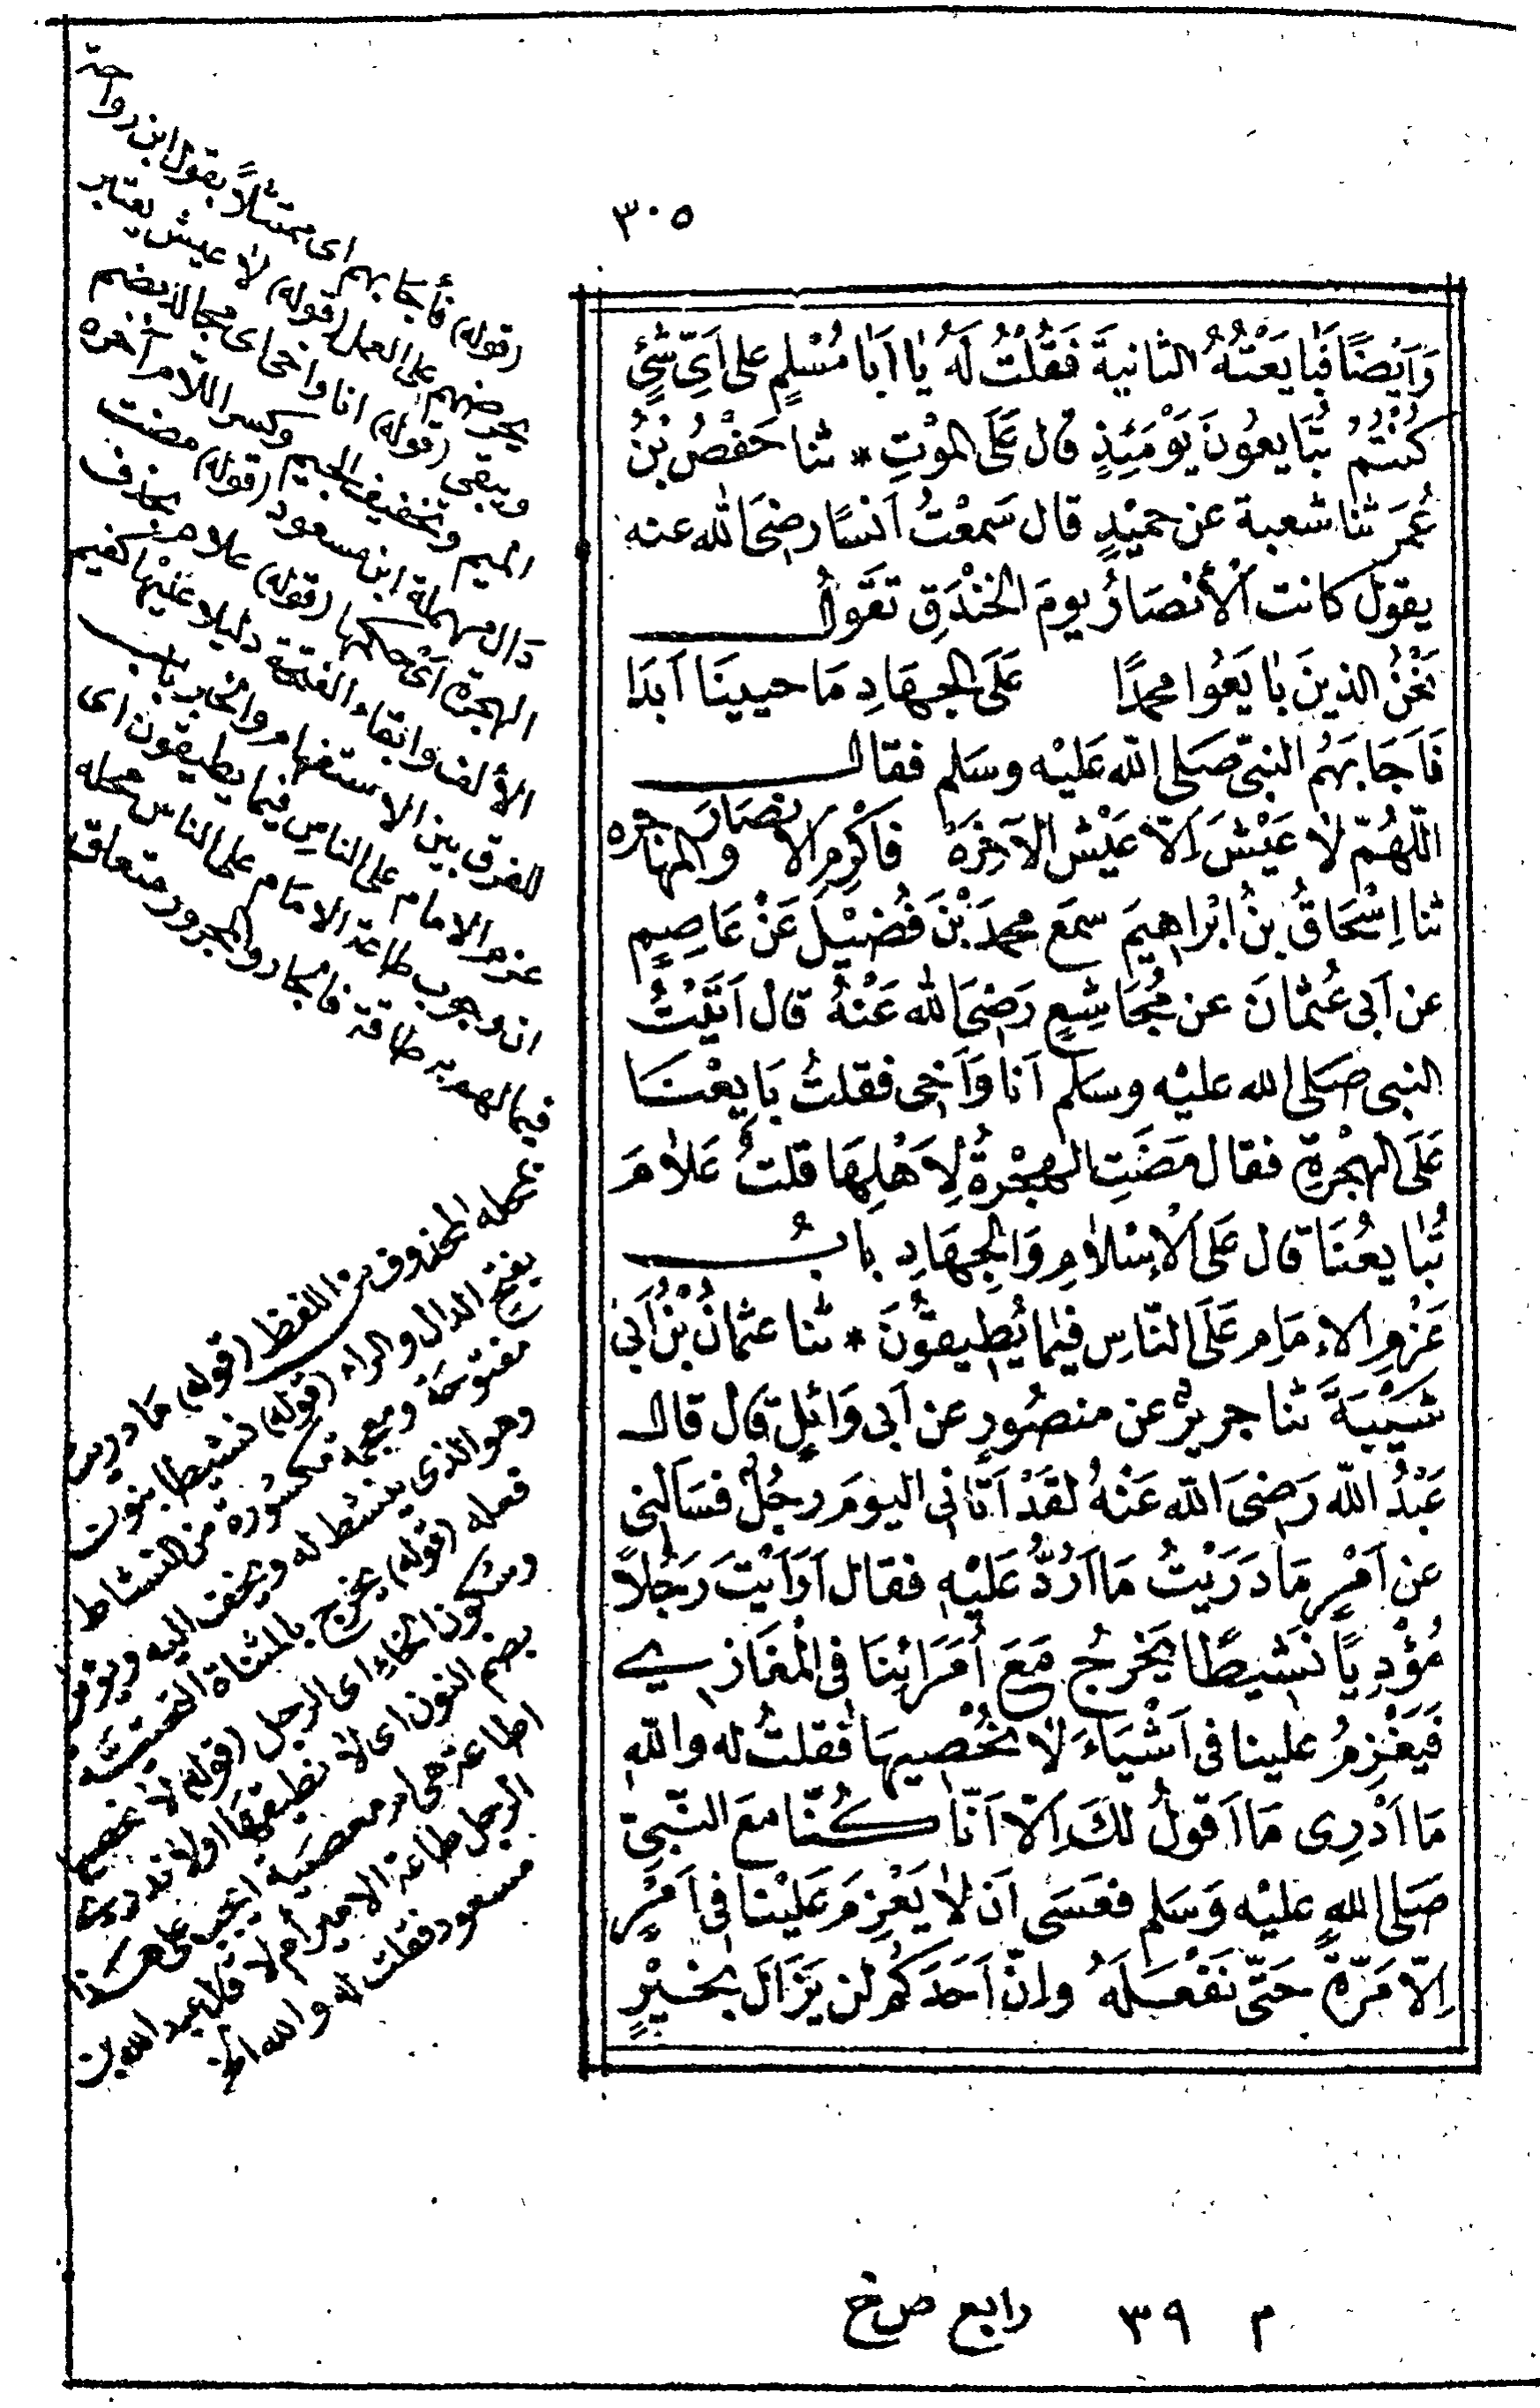 ٣٠٥
وَاَيْضًا فَبَايَعْتُهُ الثانيةَ فَقُلْتُ لَهُ يَا اَبَا مُسْلِمٍ على اَيِّ شَيْءٍ
كُنْتُمْ تُبَايِعُونَ يَوْمَئِذٍ قال عَلَى المَوْتِ * ثنا حَفْصُ بْنُ
عُمَرَ ثنا شعبة عن حميْدٍ قال سَمعْتُ اَنَسًا رضىَ الله عنه
يقول كانت اْلأَنْصَارُ يومَ الخنْدَقِ تَقُولُ
نَحْنُ الذينَ بَايَعُوا محمدًا عَلَى الجِهَادِ مَا حيينَا اَبَدَا
فَاَجَابَهُمُ النبىّ صَلى الله عَلَيْه وسَلم فقال
اللّهُمّ لاَ عَيْشَ اِلاّ عَيْشُ الآخِرَهْ فَاَكْرِمِ الاَنْصَارَ والمهاجره
ثنا اِسْحَاقُ بنُ ابْرَاهِيمَ سمَعَ محمدَ بْنَ فُضَيْلٍ عَنْ عَاصِمٍ
عن اَبى عُثمانَ عن مُجَاشِعٍ رَضىَ الله عَنْهُ قال اَتَيْتُ
النبى صَلى الله عليْه وسَلم اَنا وَاَخِى فقلتُ بَايِعْنَا
عَلَى الهِجْرَةِ فقال مَضَتِ الهِجْرَةُ لِاَهْلِهَا قلتُ عَلاَمَ
تُبَايِعُنَا قال عَلَى الاِسْلاَمِ وَالجِهَادِ بابُ
عَزْمِ الاِمَامِ عَلَى النّاسِ فيمَا يُطِيقُونَ * ثنا عثمانُ بْنُ اَبى
شَيْبَةَ ثنا جريرٌ عن منصُورٍ عن اَبى وَائِلٍ قال قال
عَبْدُ الله رَضىَ الله عَنْهُ لقَدْ اَتَانى اليومَ رجُلٌ فسَاَلَنى
عن اَمْرٍ مَا دَرَيْتُ مَا اَرُدُّ عَلَيْهِ فقال اَرَاَيْتَ رَجُلاً
مُؤْدِيًا نَشِيطًا يَخْرُجُ مَعَ اُمَرَائِنَا فى الْمَغَازِى
فَيَعْزِمُ علينا فى اَشْيَاءَ لاَ نُحْصِيهَا فقلتُ له والله
مَا اَدْرِى مَا اَقولُ لكَ اِلاّ اَنّا كُنّا معَ النّبىّ
صَلى اللهِ عليْه وَسَلم فعَسَى اَنْ لاَ يَعْزِمَ عَلَيْنا فى اَمْرٍ
اِلاّ مَرّةً حَتّى نَفْعَلَهُ وانّ اَحَدَكُمْ لن يَزَالَ بخَيْرٍ
(قوله) فأجابهم اى متمثلاً بقول ابن رواحة
يحرضهم على العمل (قوله) لا عيش يعتبر
ويبقى (قوله) انا واخى اى مجالد بضم
الميم وتخفيف الجيم وكسر اللام آخره
دال مهملة ابن مسعود (قوله) مضت
الهجرة اى حكمها (قوله) علام بحذف
الألف وابقاء الفتحة دليلا عليها كفيم
للفرق بين الاستفهام والخبر باب
عزم الامام على الناس فيما يطيقون اى
ان وجوب طاعة الامام على الناس محله
فيما لهم به طاقة فالجار والمجرور متعلق
بمحله المحذوف من اللفظ (قوله) مَا دريت
بفتح الدال والراء (قوله) نشيطا بنون
مفتوحة ومعجمة مكسورة من النشاط
وهو الذى ينشط له ويخف اليه ويؤثر
فعله (قوله) يخرج بالمثناة التحتية
وسكون الخاء اى الرجل (قوله) لا نحصيها
بضم النون اى لا نطيقها او لا ندرى
اطاعة هى ام معصية ايجب على هذا
الرجل طاعة الامير أم لا قال عبد الله بن
مسعود فقلت له والله الخ
م ٣٩ رابع ص خ